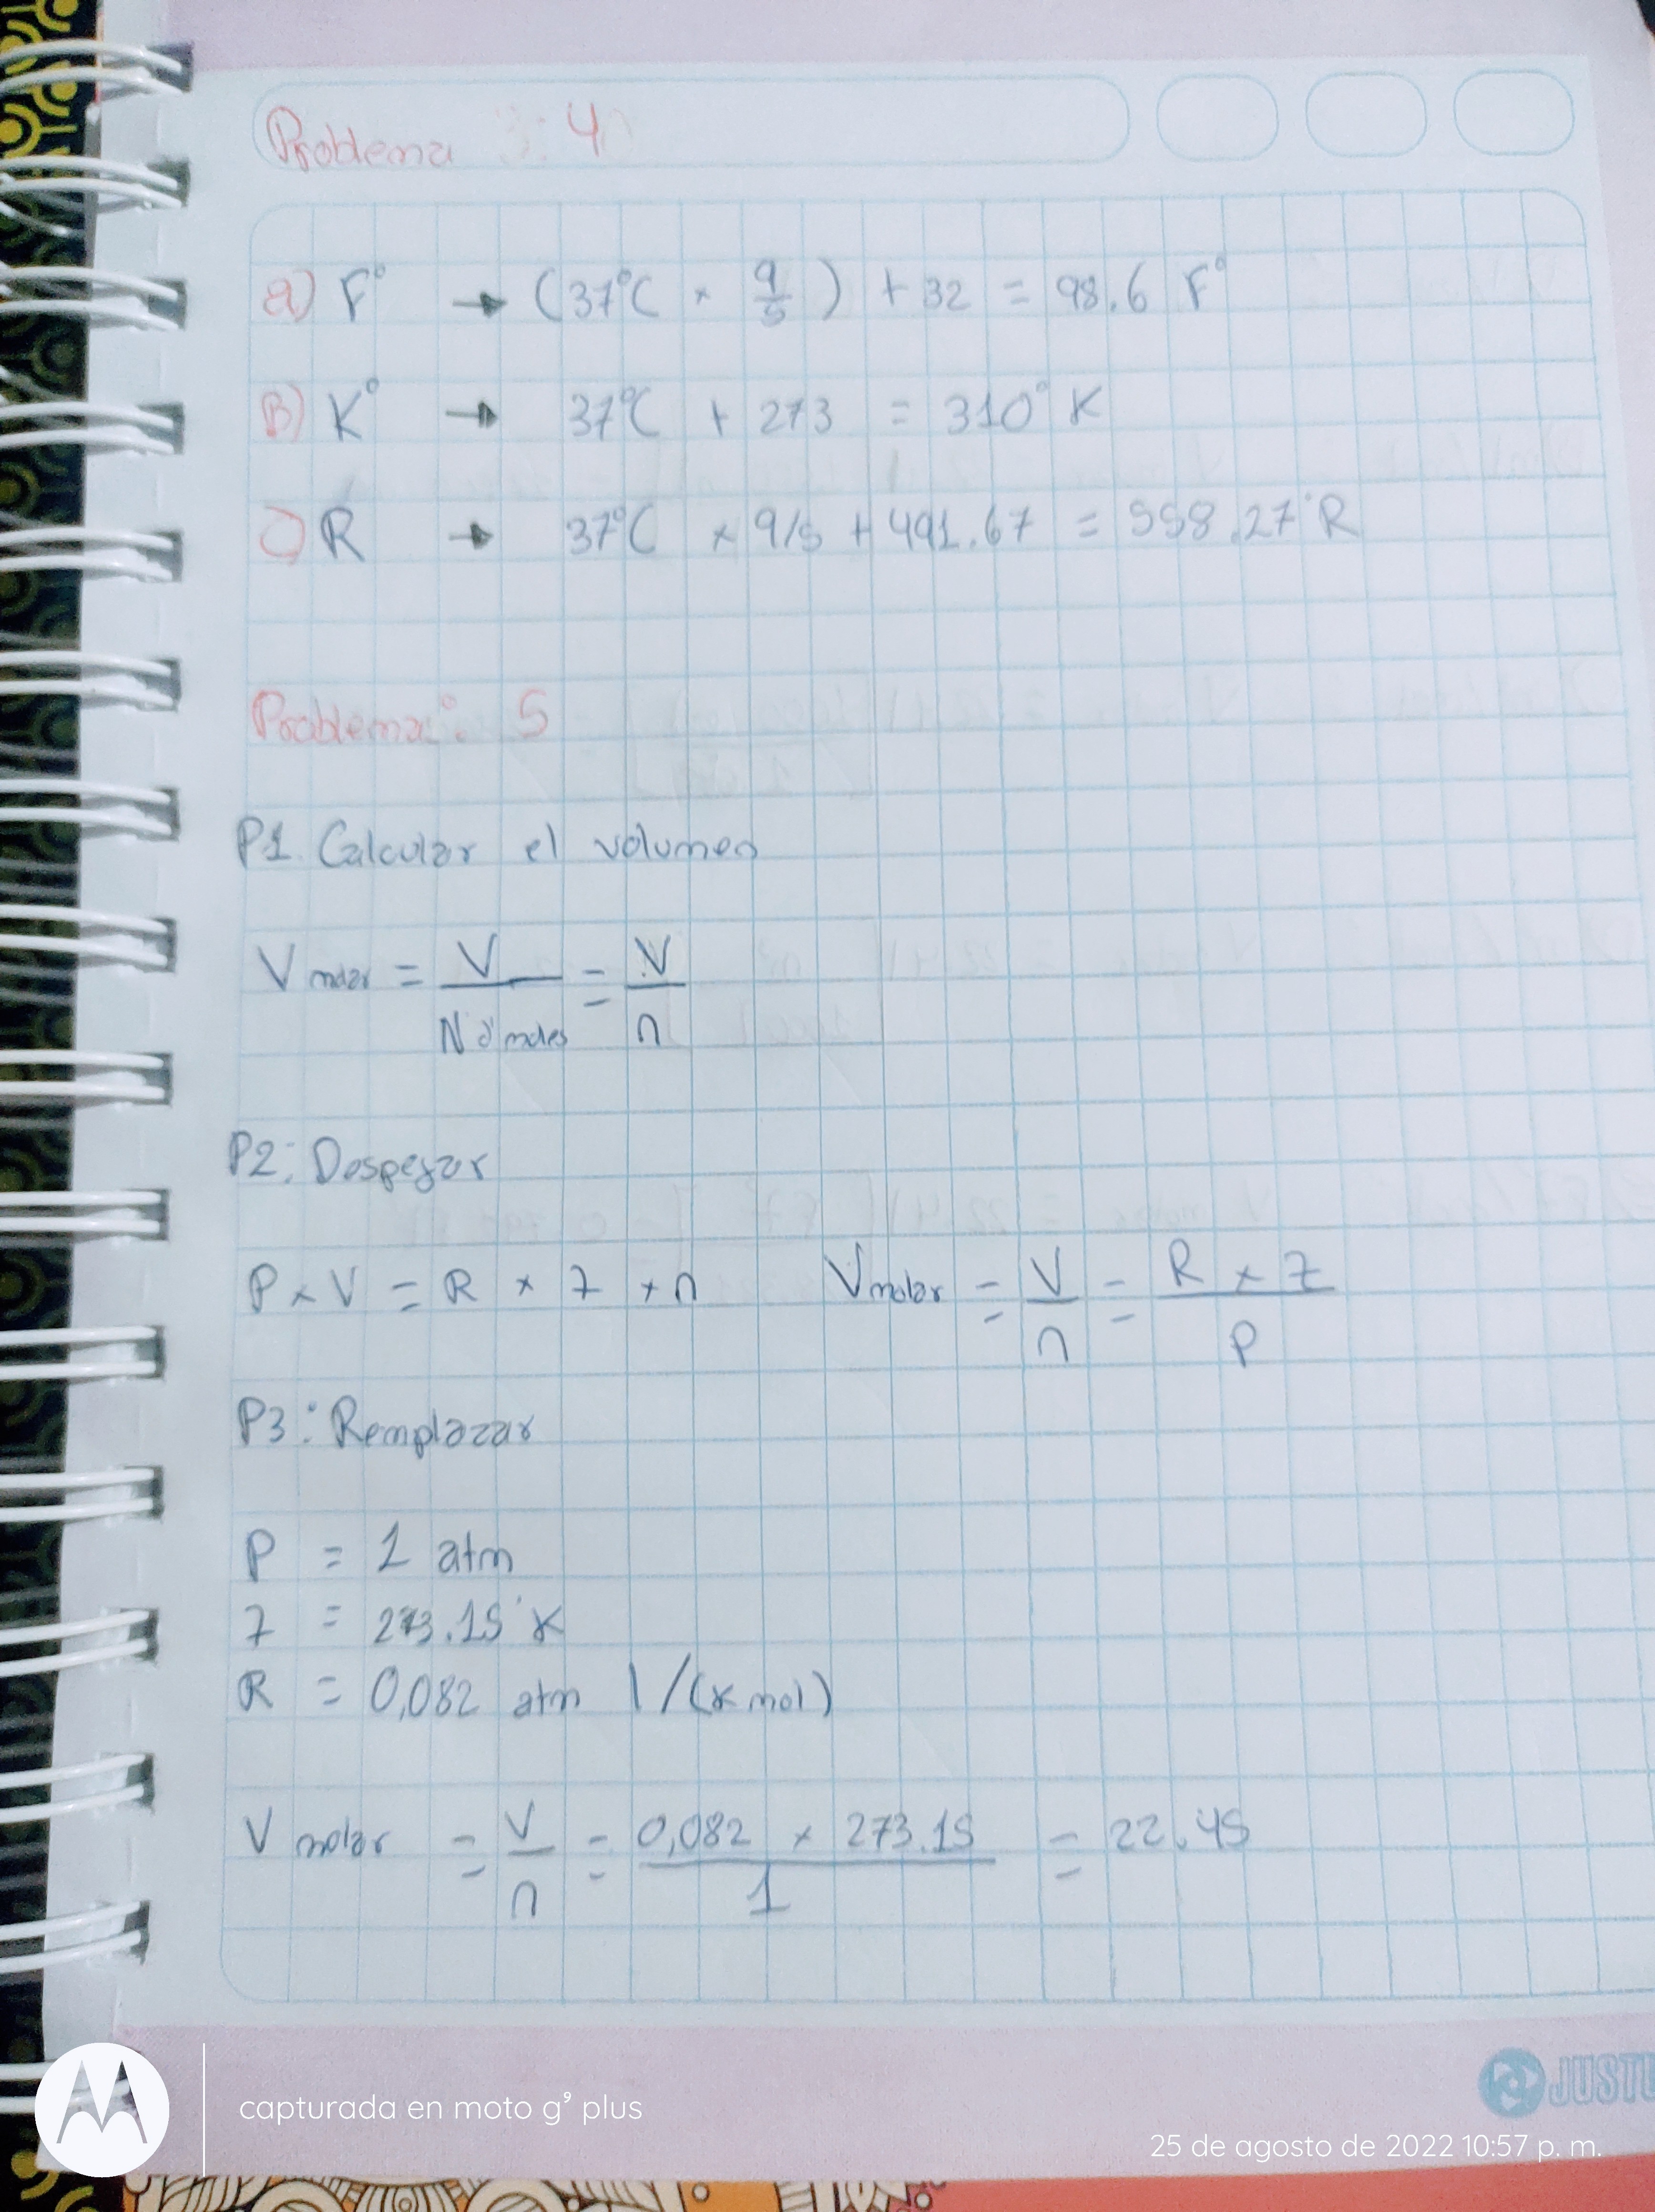 Problema : 4
a) F° → (37°C × 9/5) + 32 = 98.6 F°
B) K° → 37°C + 273 = 310° K
C) R → 37°C × 9/5 + 491.67 = 558.27°R
Problema: 5
P1. Calcular el volumen
V molar = V / N° moles = V / n
P2: Despejar
P × V = R × T × n V molar = V / n = R × T / P
P3: Remplazar
P = 1 atm
T = 273.15°K
R = 0,082 atm l/(K mol)
V molar = V / n = 0,082 × 273.15 / 1 = 22.45
JUSTO
capturada en moto g⁹ plus
25 de agosto de 2022 10:57 p. m.